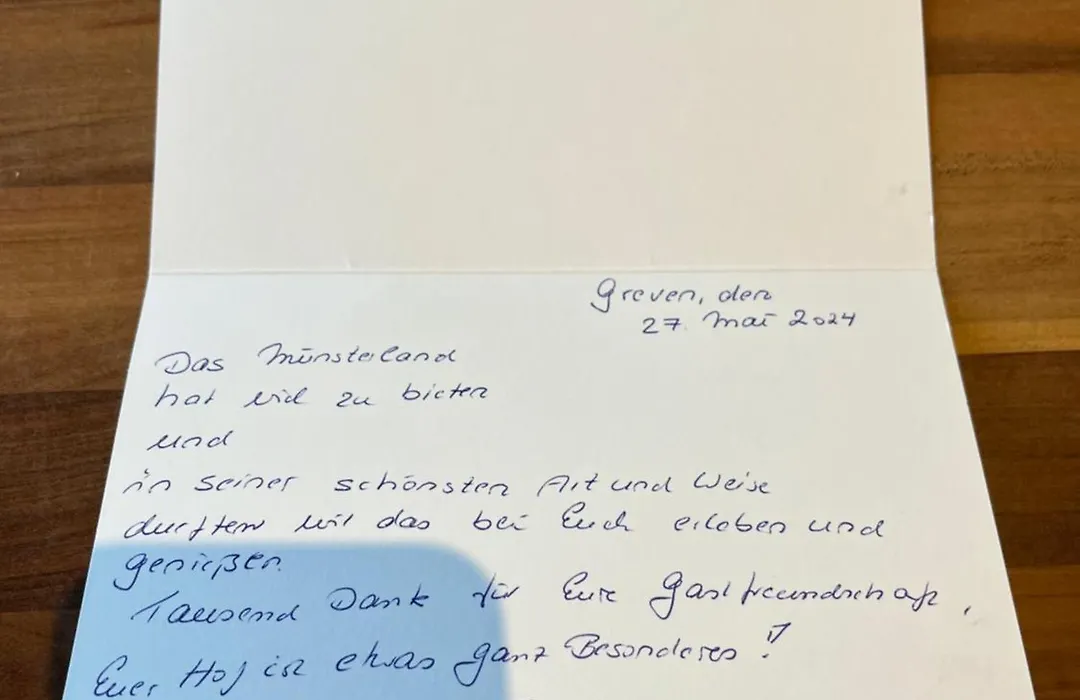 Greven, den
27. Mai 2024
Das Münsterland
hat viel zu bieten
und
in seiner schönsten Art und Weise
durften wir das bei Euch erleben und
genießen.
Tausend Dank für Eure Gastfreundschaft,
Euer Hof ist etwas ganz Besonderes!